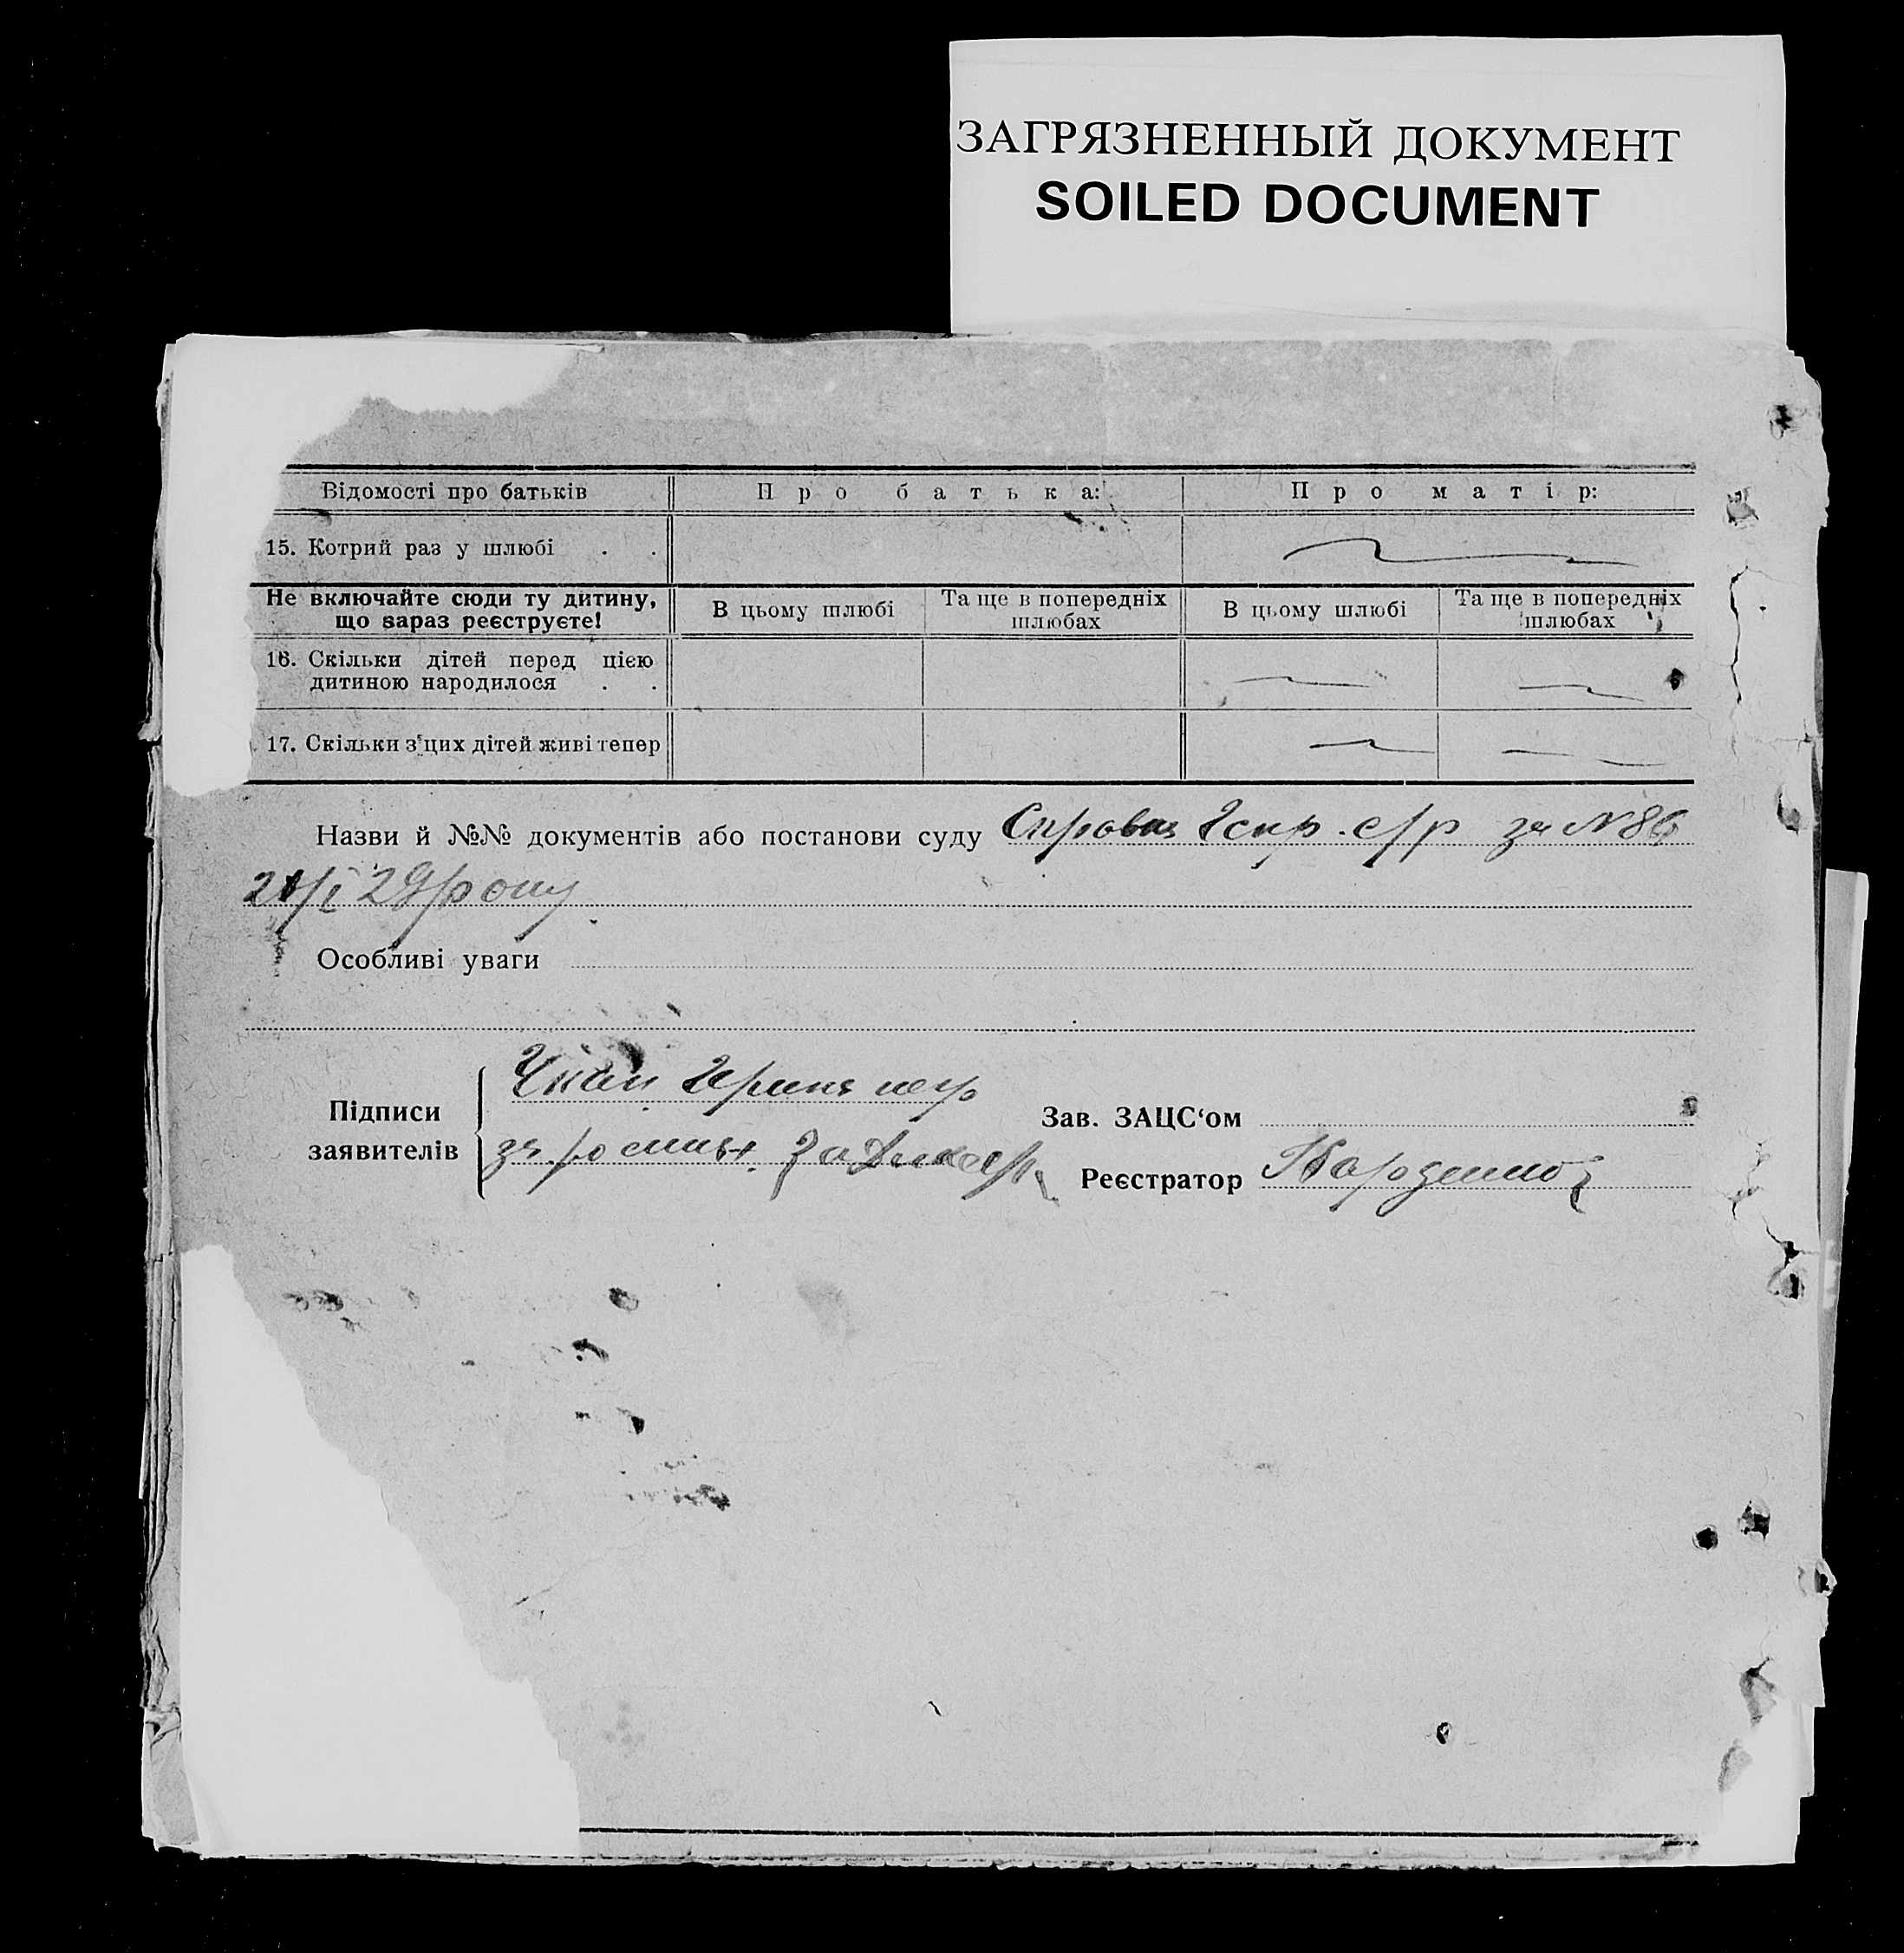 ЗАГРЯЗНЕННЫЙ ДОКУМЕНТ
SOILED DOCUMENT
Відомості про батьків Про батька: Про матір:
15. Котрий раз у шлюбі . .
Не включайте сюди ту дитину, що зараз реєструєте! В цьому шлюбі Та ще в попередніх шлюбах В цьому шлюбі Та ще в попередніх шлюбах
16. Скільки дітей перед цією
дитиною народилося . .
17. Скільки з'цих дітей живі тепер
Назви й №№ документів або постанови суду с/р за N 86
29 року
Особливі уваги
Підписи
заявителів
Зав. ЗАЦС‘ом
Реєстратор